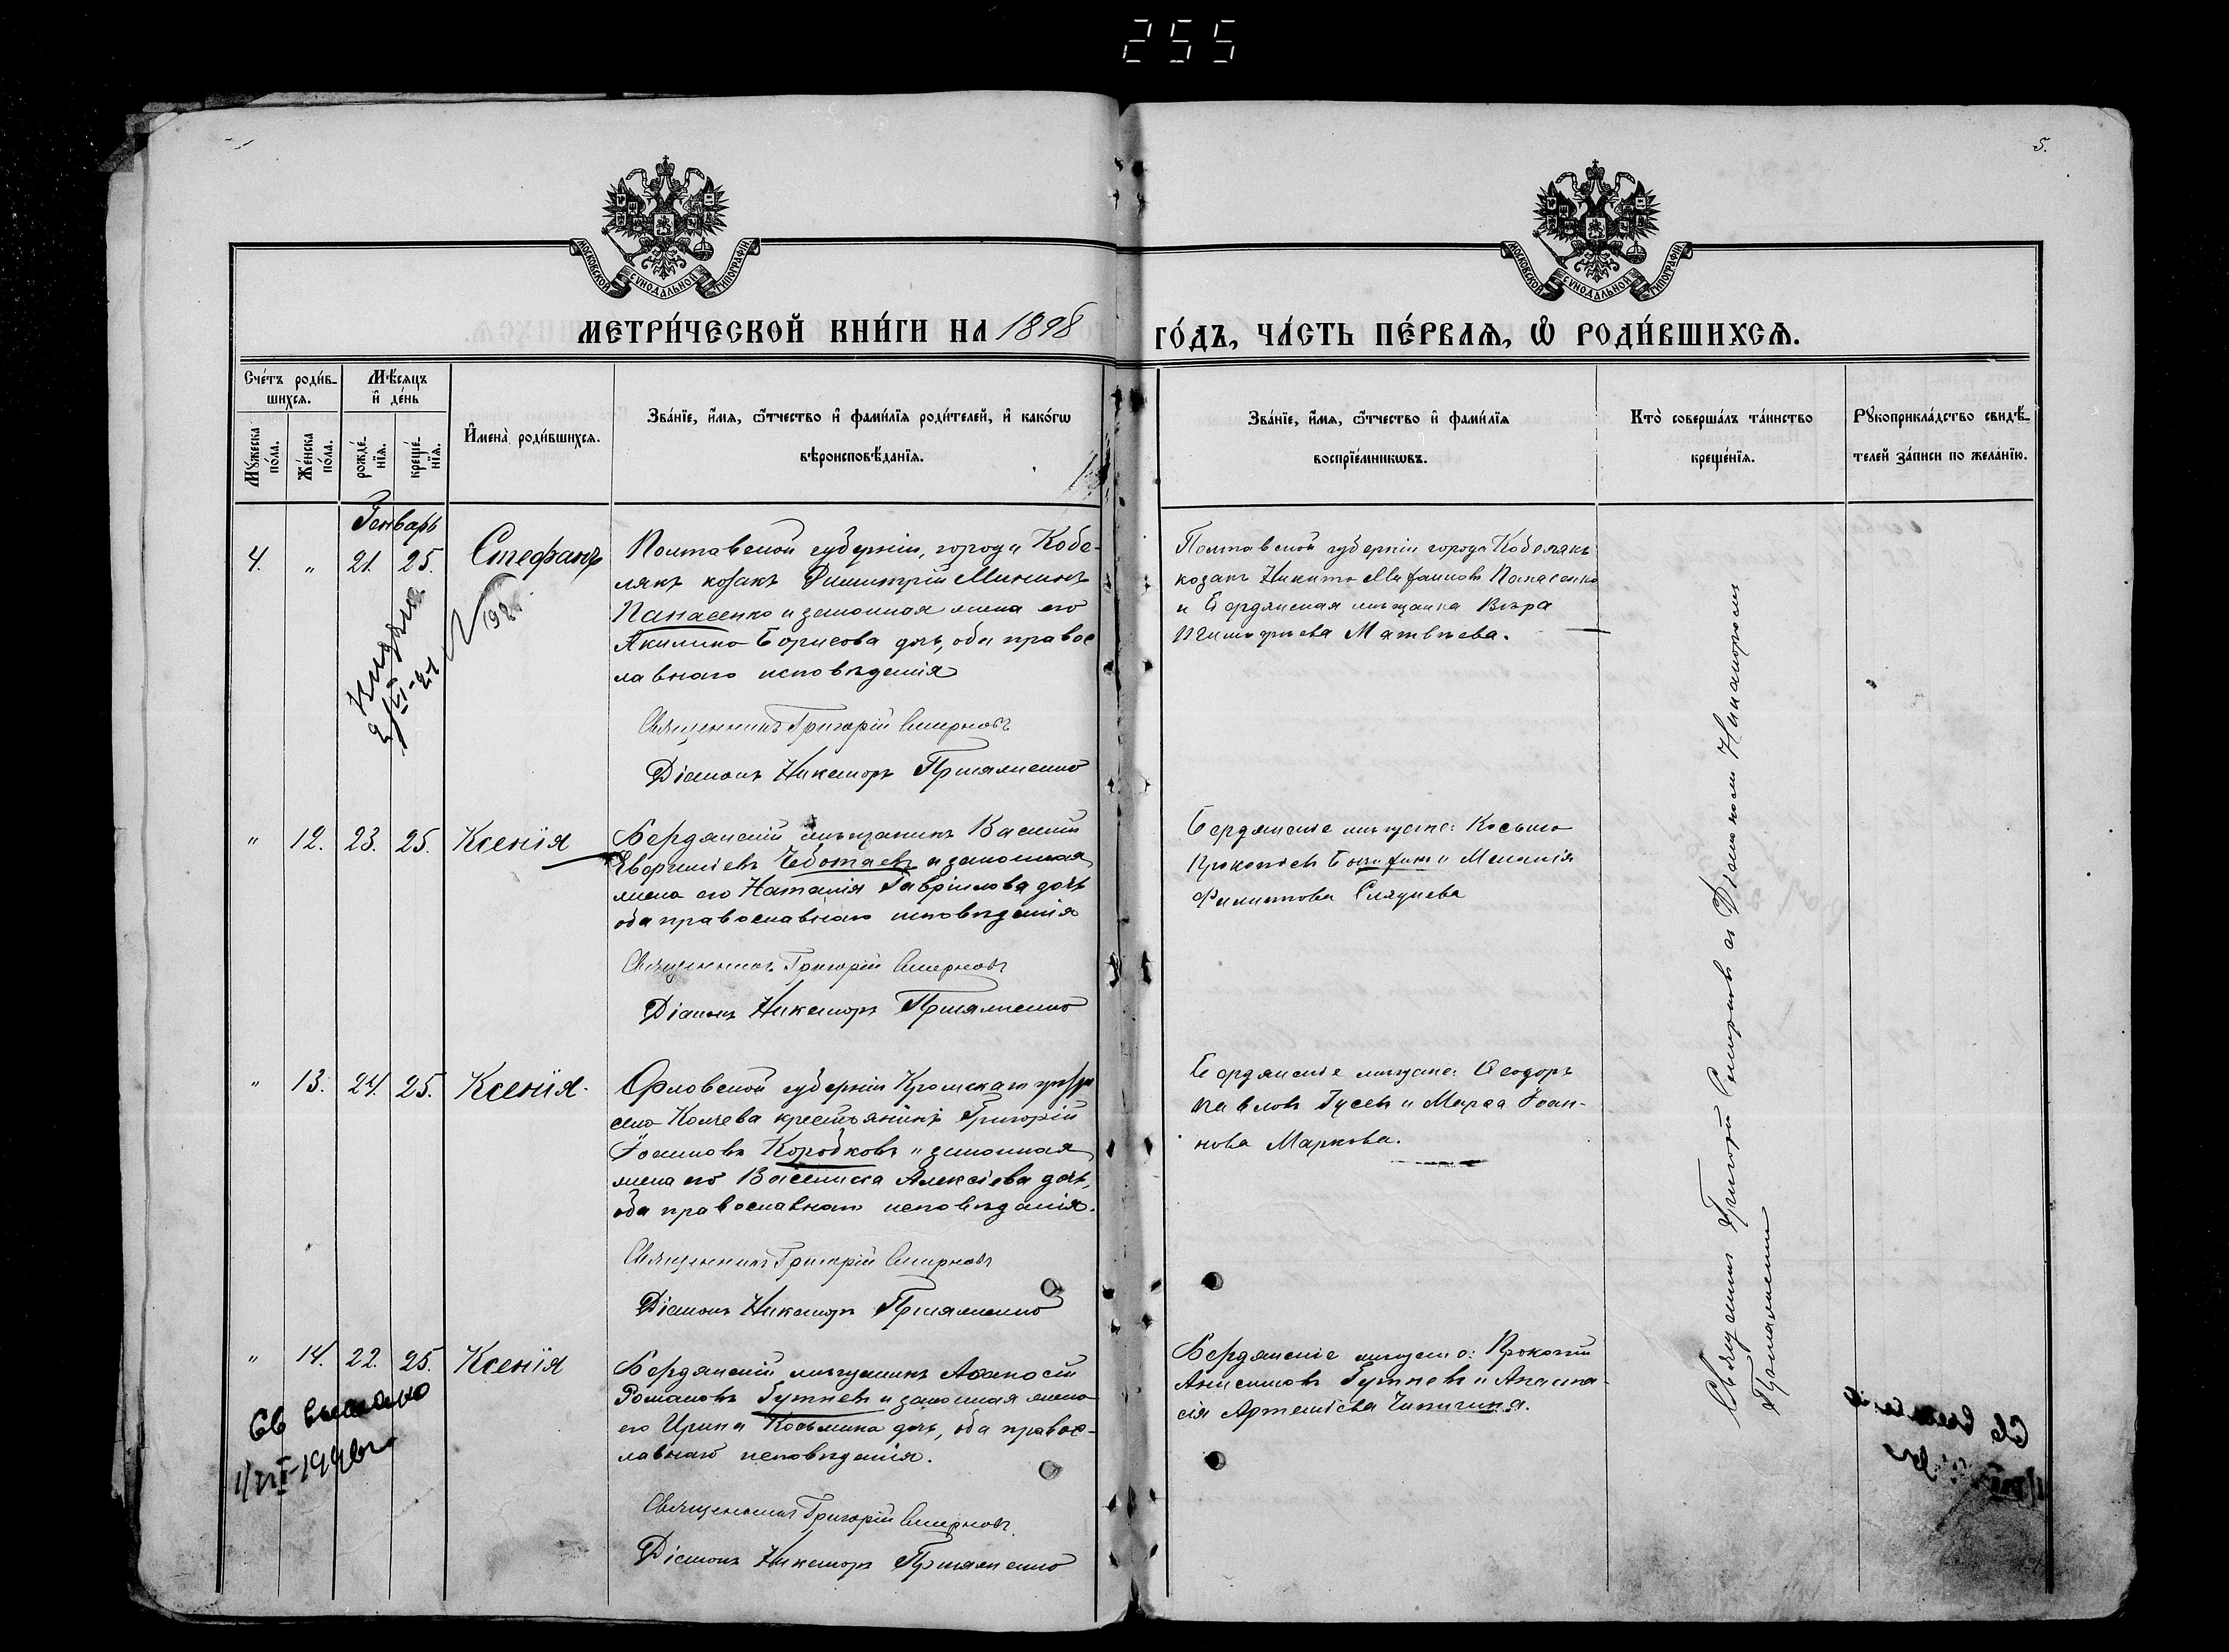 255
5.
МОСКОВСКОЙ СУНОДАЛЬНОЙ ТИПОГРАФІИ
МОСКОВСКОЙ СУНОДАЛЬНОЙ ТИПОГРАФІИ
МЕТРИ́ЧЕСКОЙ КНИ́ГИ НА 1898
ГО́ДЪ, ЧА́СТЬ ПЕ́РВАѦ, Ѡ҆ РОДИ́ВШИХСѦ.
Сче́тъ роди́в-
шихсѧ.
Мѣ́сяцъ
и҆ де́нь
Мꙋ́жеска по́ла.
Же́нска по́ла.
рожде́-
нїѧ.
креще́-
нїѧ.
И҆мена̀ роди́вшихсѧ.
Зва́нїе, и҆́мѧ, ѻ҆́тчество и҆ фами́лїѧ роди́телей, и҆ како́гѡ
вѣроисповѣ́данїѧ.
Зва́нїе, и҆́мѧ, ѻ҆́тчество и҆ фами́лїѧ
воспрїе́мникѡвъ.
Кто̀ соверша́лъ та́инство
креще́нїѧ.
Рꙋкоприкла́дство свидѣ́-
телей за́писи по жела́нїю.
Генварь
4. " 21. 25. Стефанъ
Полтавской губерніи, города Кобе-
лякъ козакъ Димитрій Мининъ
Панасенко и законная жена его
Акилина Борисова дочь, оба правос
лавнаго исповѣданія
Священникъ Григорій Смирновъ
Діаконъ Никаноръ
Полтавской губерніи города Кобелякъ
козакъ Никита Панасенко
и Бердянская мѣщанка Вѣра
Матвѣева.
" 12. 23. 25. Ксенія
Бердянскій мѣщанинъ Василій
Чеботаевъ и законная
жена его Наталія Гавріилова дочь
оба православнаго исповѣданія
Священникъ Григорій Смирновъ
Діаконъ Никаноръ
Бердянскіе мѣщане: Косьма
Прокопіевъ и Меланія
Филиппова
" 13. 24. 25. Ксенія.
Орловской губерніи Кромскаго уѣзда
села Колчева крестьянинъ Григорій
Іоанновъ Коробковъ и законная
жена его Василиса Алексіева дочь,
оба православнаго исповѣданія.
Священникъ Григорій Смирновъ
Діаконъ Никаноръ
Бердянскіе мѣщане: Ѳеодоръ
Павловъ Гусевъ и Марѳа Іоан-
нова Маркова.
" 14. 22. 25. Ксенія
Бердянскій мѣщанинъ Аѳанасій
Романовъ и законная жена
его Ирина Косьмина дочь, оба правос-
лавнаго исповѣданія.
Священникъ Григорій Смирновъ.
Діаконъ Никаноръ
Бердянскіе мѣщане: Прокопій
Анисимовъ и Анаста-
сія Артеміева Чипигина.
Священникъ Григорій Смирновъ съ Діакономъ Никаноромъ